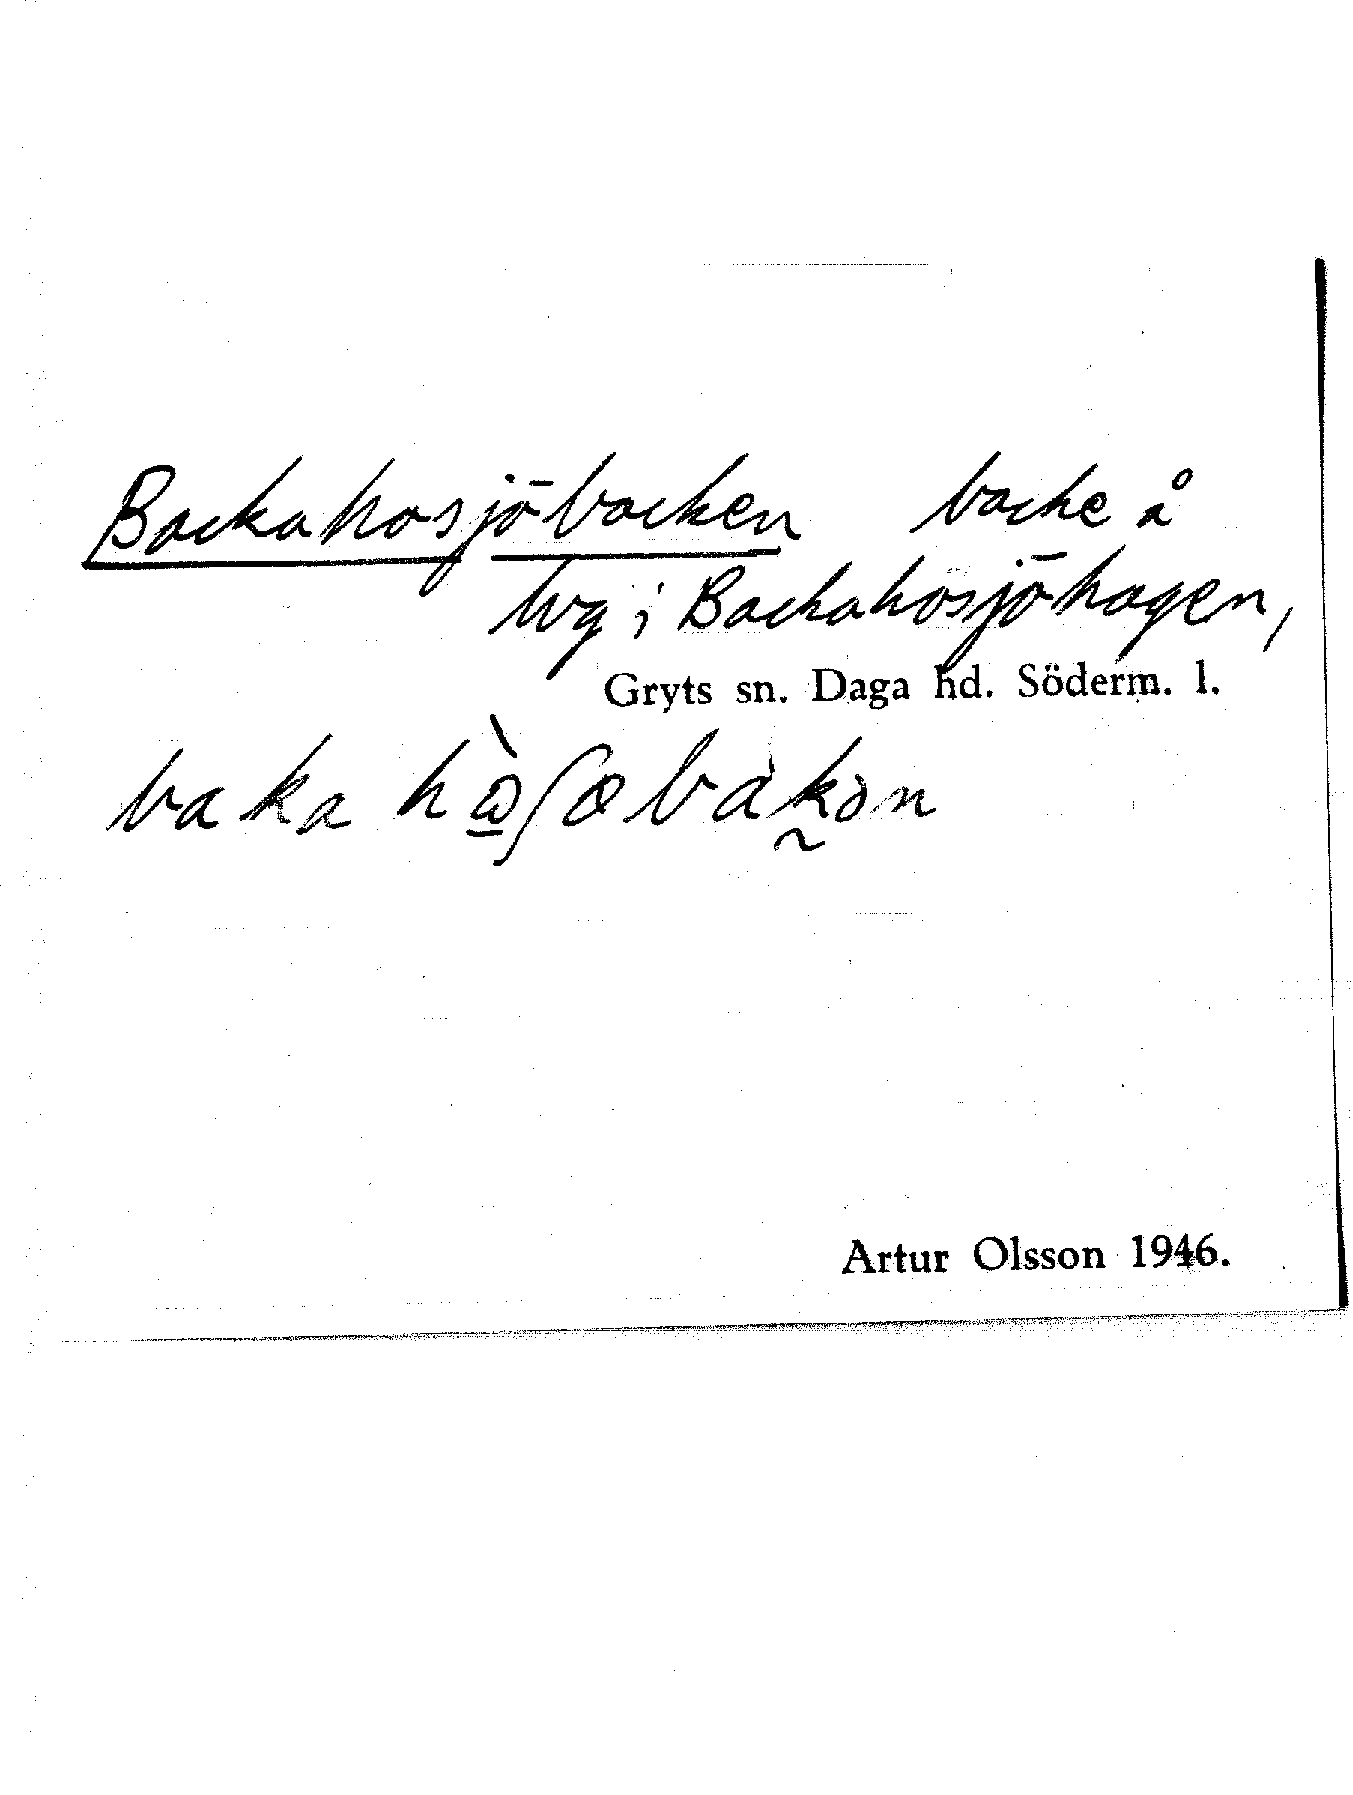 Backahosjöbacken backe å
väg i Backahosjöhagen,
Gryts sn. Daga hd. Söderm. l.
baka hὼʃøbakən
Artur Olsson 1946.